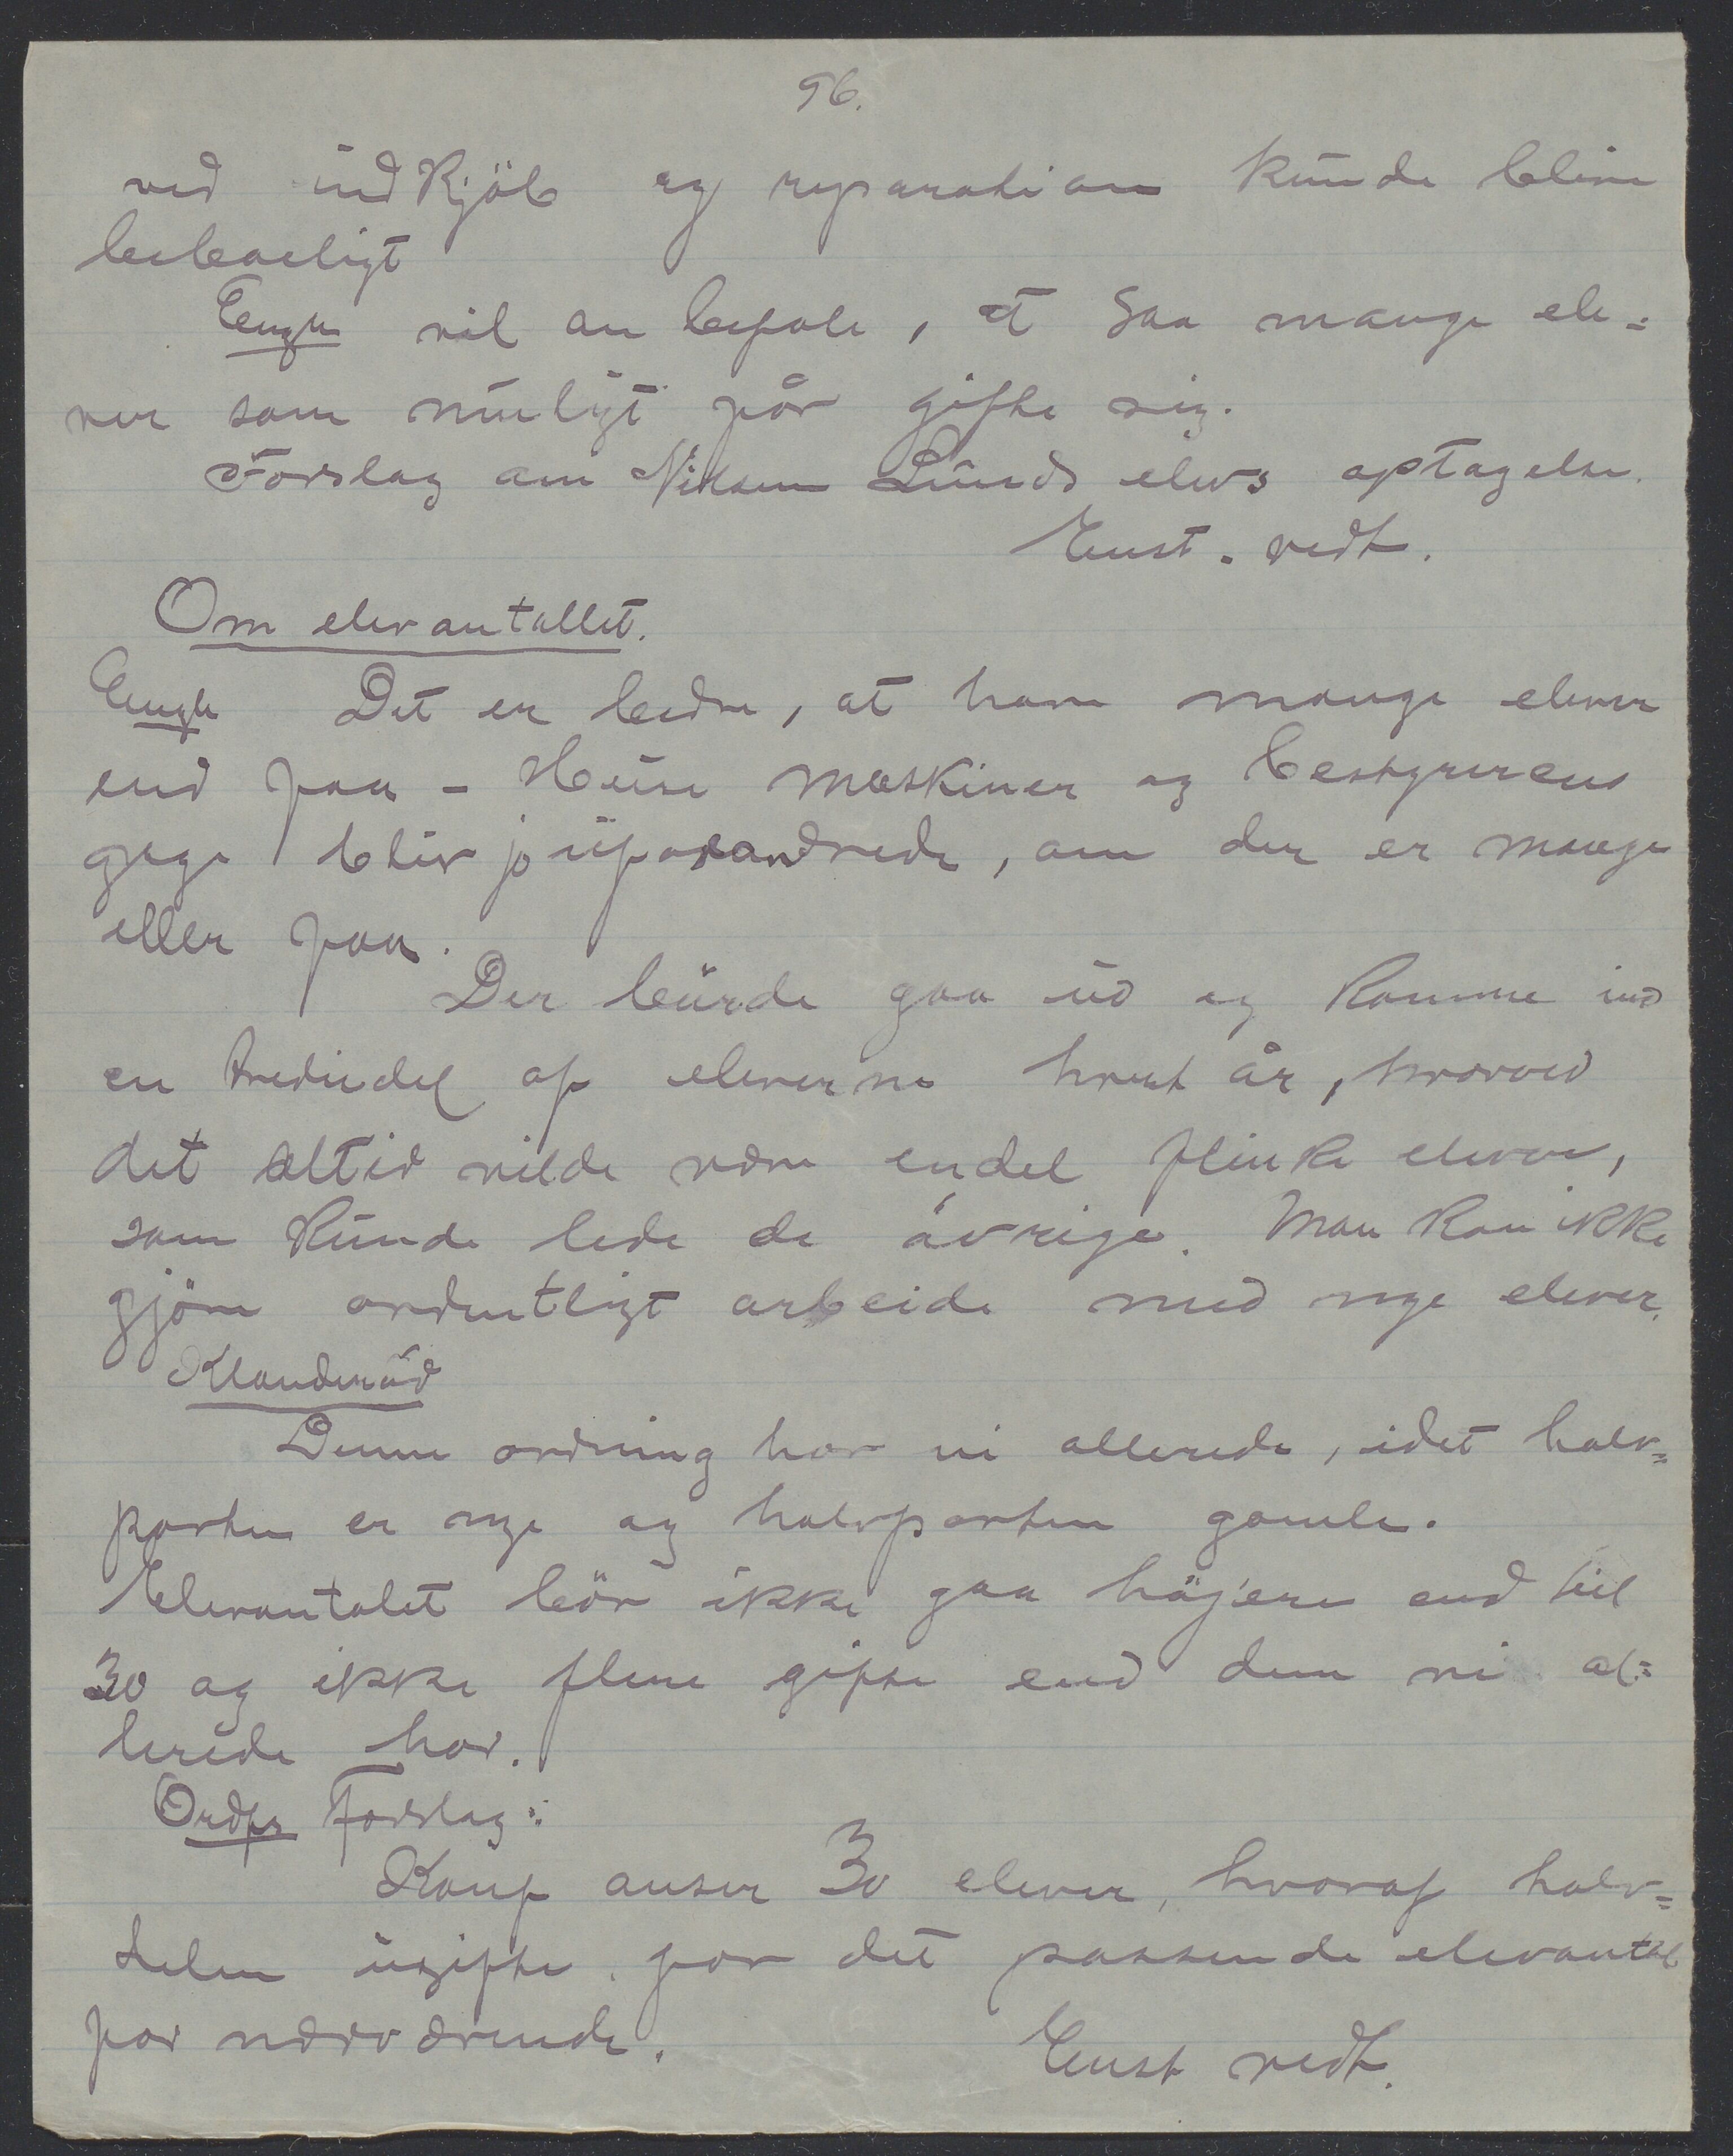 96.
ved indkjöb og reparation kunde blive
bekosteligt
Engh vil anbefale, at saa mange ele=
ver som muligt får gifte sig.
Forslag om Nilsen Lunds elevs optagelse.
Enst. vedt.
Om elevantallet.
Engh Det er bedre, at have mange elever
end faa - Huse maskiner og bestyrerens
gage bliver jo uforandrede, om der er mange
eller faa.
Der burde gaa ud og komme ind
en trediedel af eleverne hvert år, hvorved
det altid vilde være endel flinke elever,
som kunde lede de övrige. Man kan ikke
gjöre ordentligt arbeide med nye elever.
Klonderöd
Denne ordning har vi allerede, idet halv=
parten er nye og halvparten gamle.
Elevantalet bör ikke gaa höjere end til
30 og ikke flere gifte end dem vi al=
lerede har.
Ordfr Forslag:
Konf anser 30 elever, hvoraf halv=
delen ugifte for det passende elevantal
for nærværende.
Enst vedt.